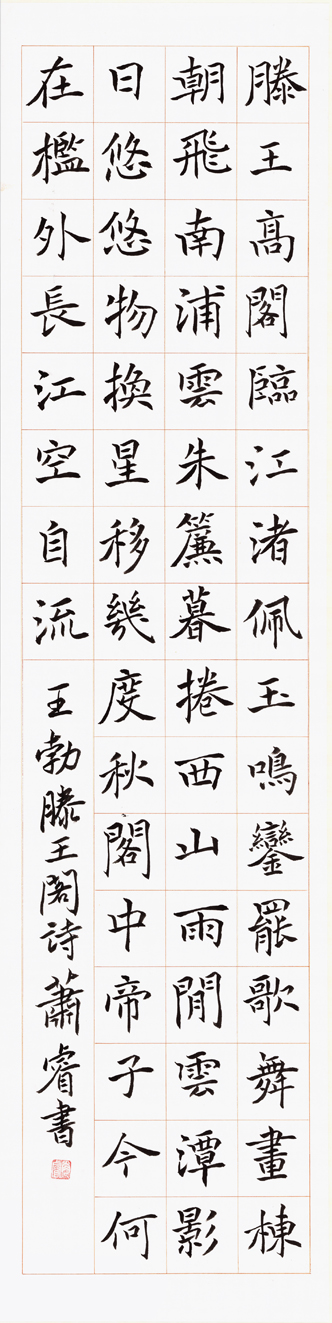 滕王高閣臨江渚佩玉鳴鑾罷歌舞畫棟
朝飛南浦雲朱簾暮捲西山雨閒雲潭影
日悠悠物換星移幾度秋閣中帝子今何
在檻外長江空自流
王勃滕王閣詩蕭睿書